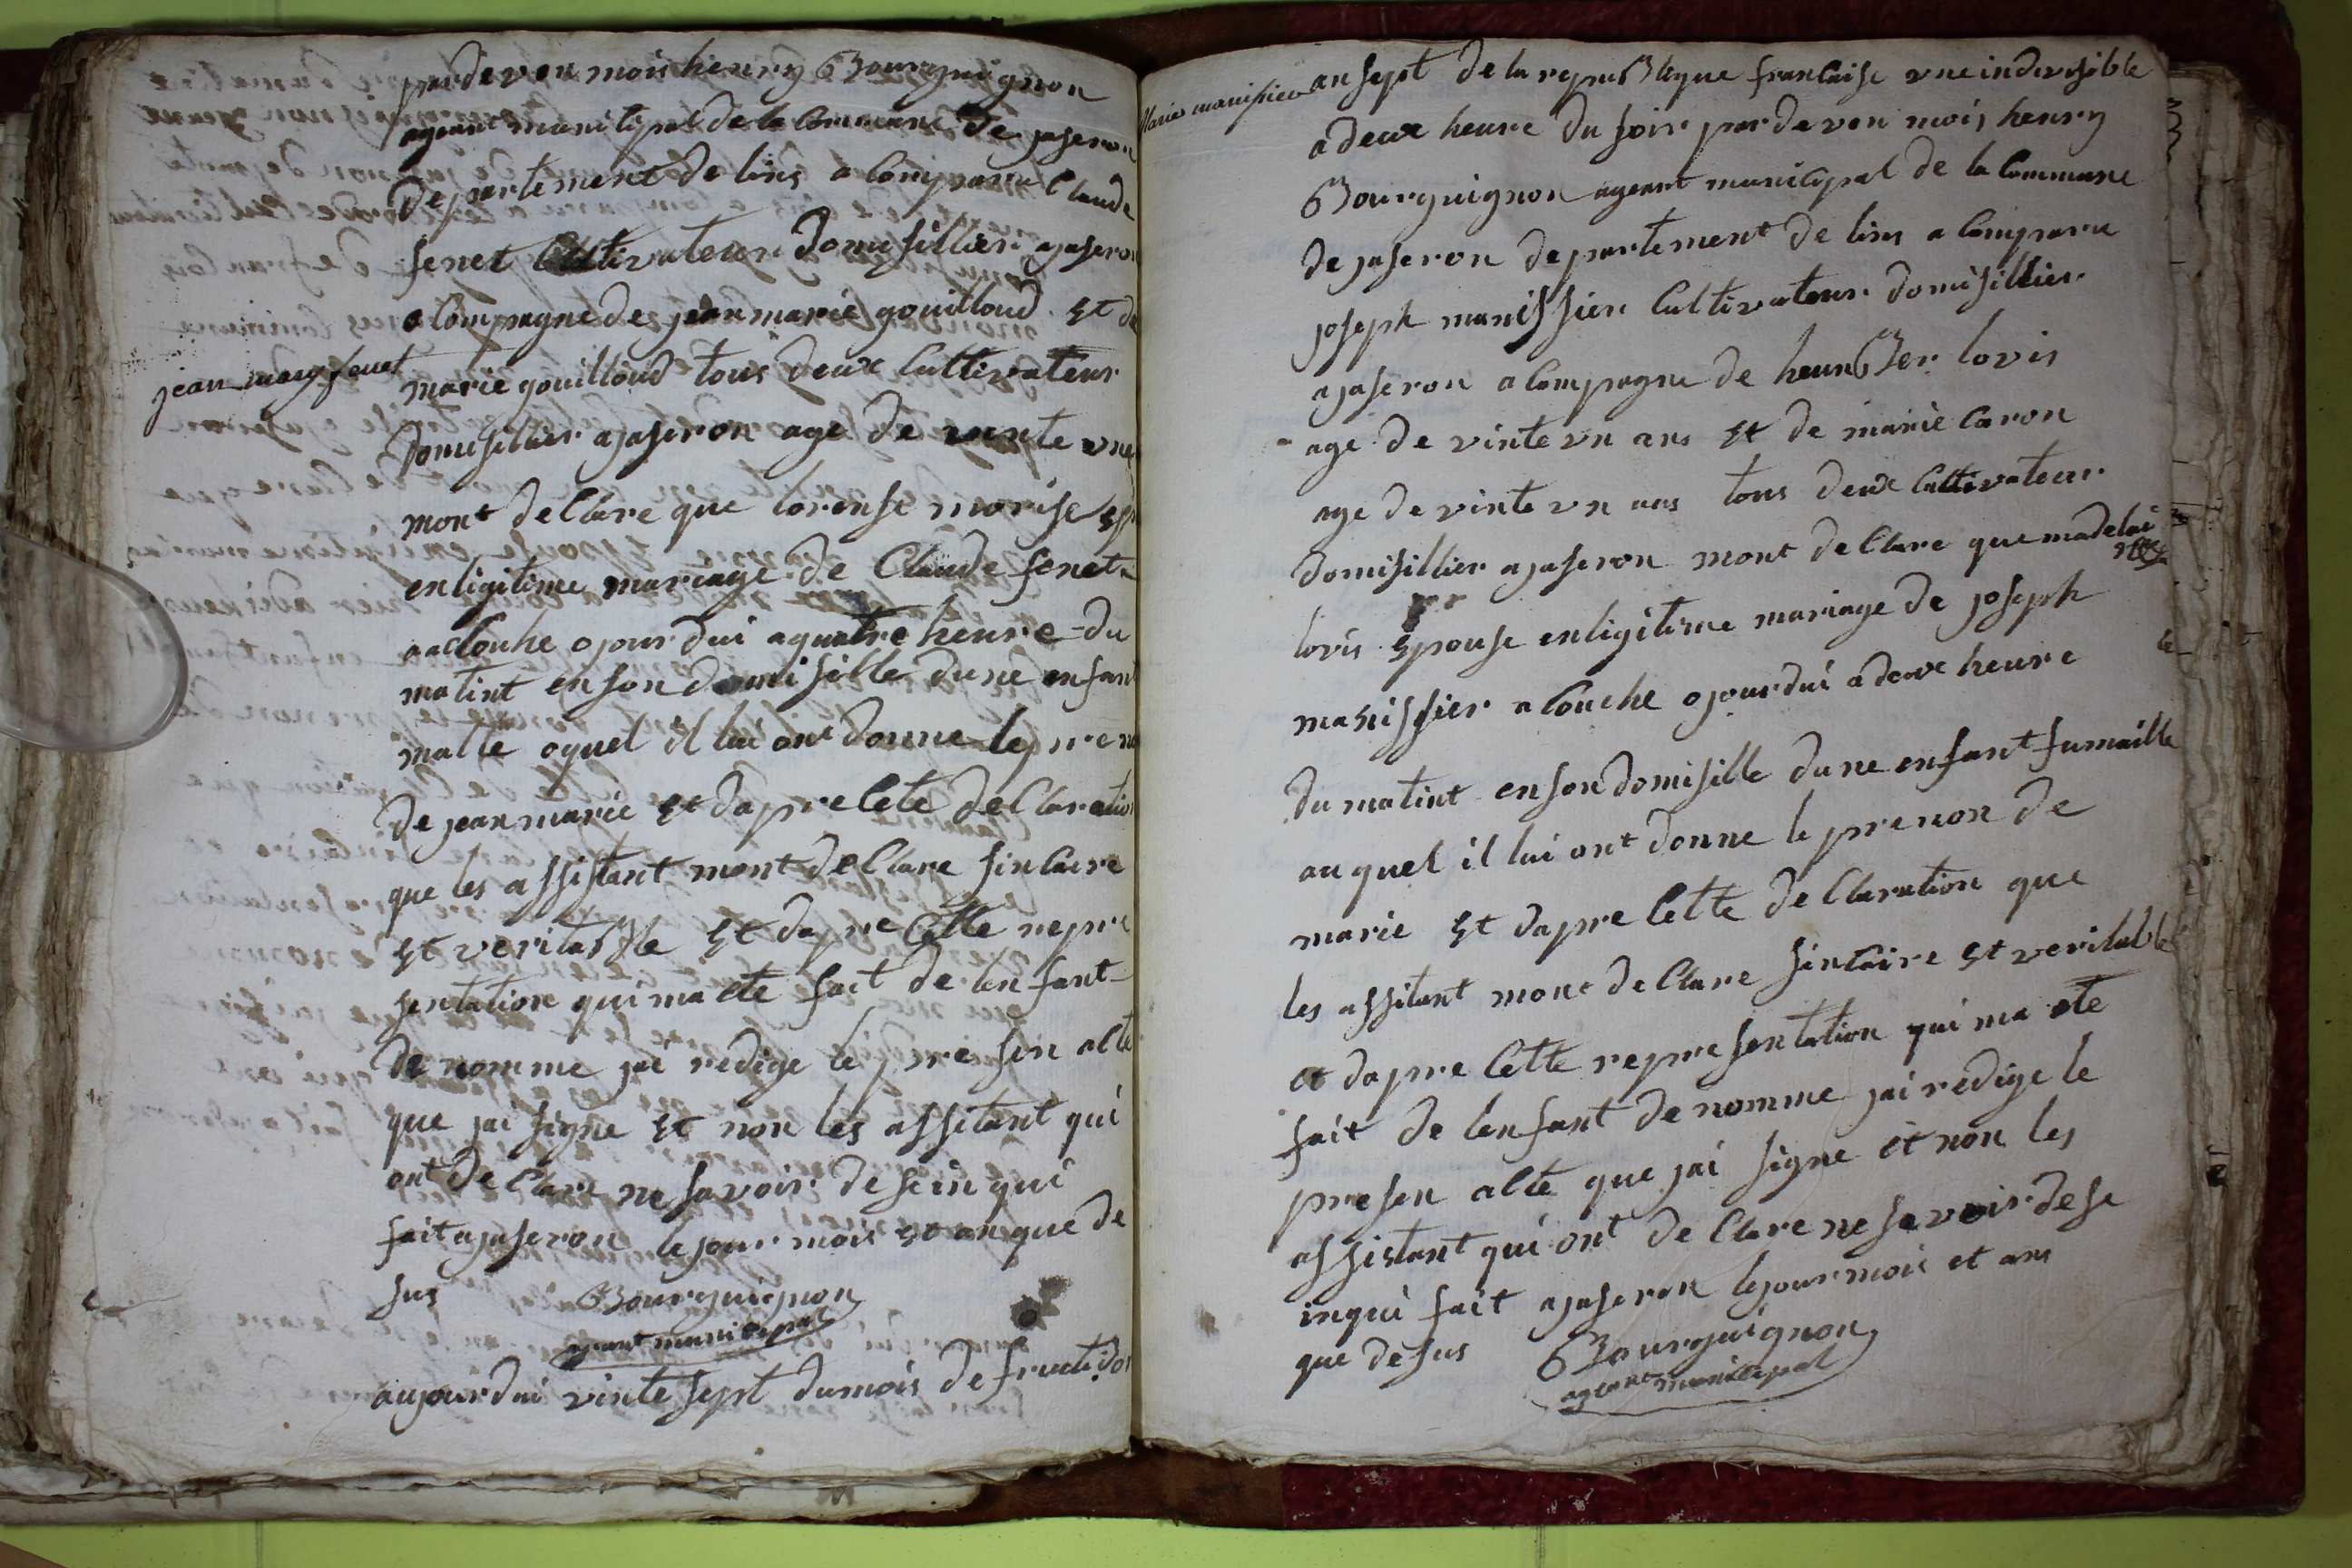 pardevon mois henry Bourguignon
ageant municipal de la Commune de jaseron
departement de lins a Comparu Claude
fenet Cultivateur domisillier ajaseron
a Compagne de jean marie gouilloud et de
jean mary fenet
marie gouilloud tous deux Cultivateur
domisillier ajaseron age de vinte une
mont declare que lorense morise
enligitime mariage de Claude fenet
a aCouhe ojourdui aquatre heure du
matint enson domisille dune enfant
malle oquel il lui ont donne le preno
de jean marie et dapre Cete declaration
que les assistant mont declare sinlaire
et veritable et dapre Cette repre
sentation qui ma ete fait de lenfant
de nomme jai redige le presen alte
que jai signe et non les assitant qui
ont declare ne savoir de se in qui
fait ajaseron le jour mois et an que de
sus Bourguignon
ageant municipal
aujourdui vinte sept dumois de fructidor
Marie manissier
an sept de la republique franlaise une indivisible
a deux heure du soir pardevon mois henry
Bourguignon ageant municipal de la Commune
de jaseron departement de lins a Comparu
joseph manissier Cultivateur domisillier
ajaseron a Compagne de humber lovis
age de vinte un ans et de marie Caron
age de vinte un ans tous deux Cultivateur
domisillier ajaseron mont declare que madelai
ne
lovis epouse enligitime mariage de joseph
manissier a Couche ojourdui a deux heure
du matint enson domisille dune enfant fumaille
au quel il lui ont donne le prenon de
marie et dapre Cette declaration que
les assitant mont declare sinlaire et veritable
et dapre Cette representation qui ma ete
fait de lenfant de nomme jai redige le
presen alte que jai signe et non les
assistant qui ont declare ne savoir de se
inqui fait ajaseron le jour mois et ans
que de sus Bourguignon
ageant municipal